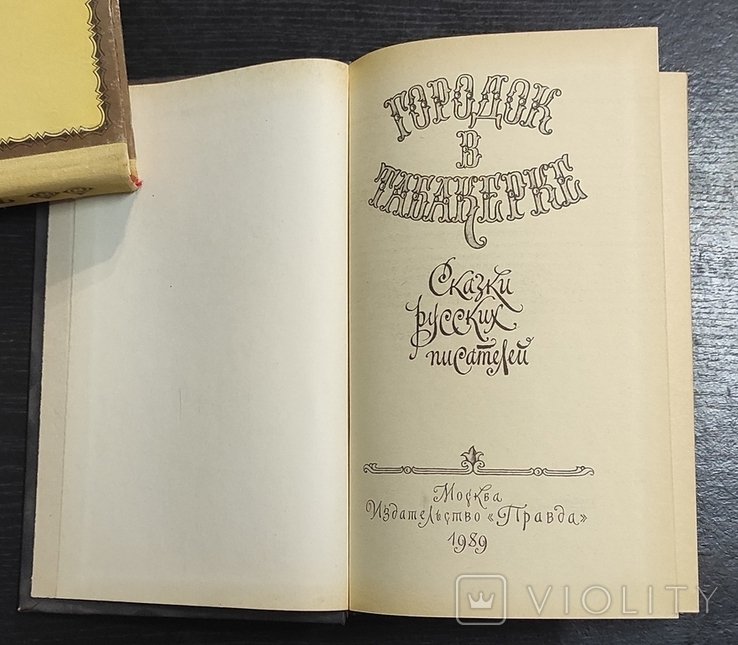 ГОРОДОК
В
ТАБАКЕРКЕ
Сказки
русских
писателей
Москва
Издательство «Правда»
1989
VIOLITY